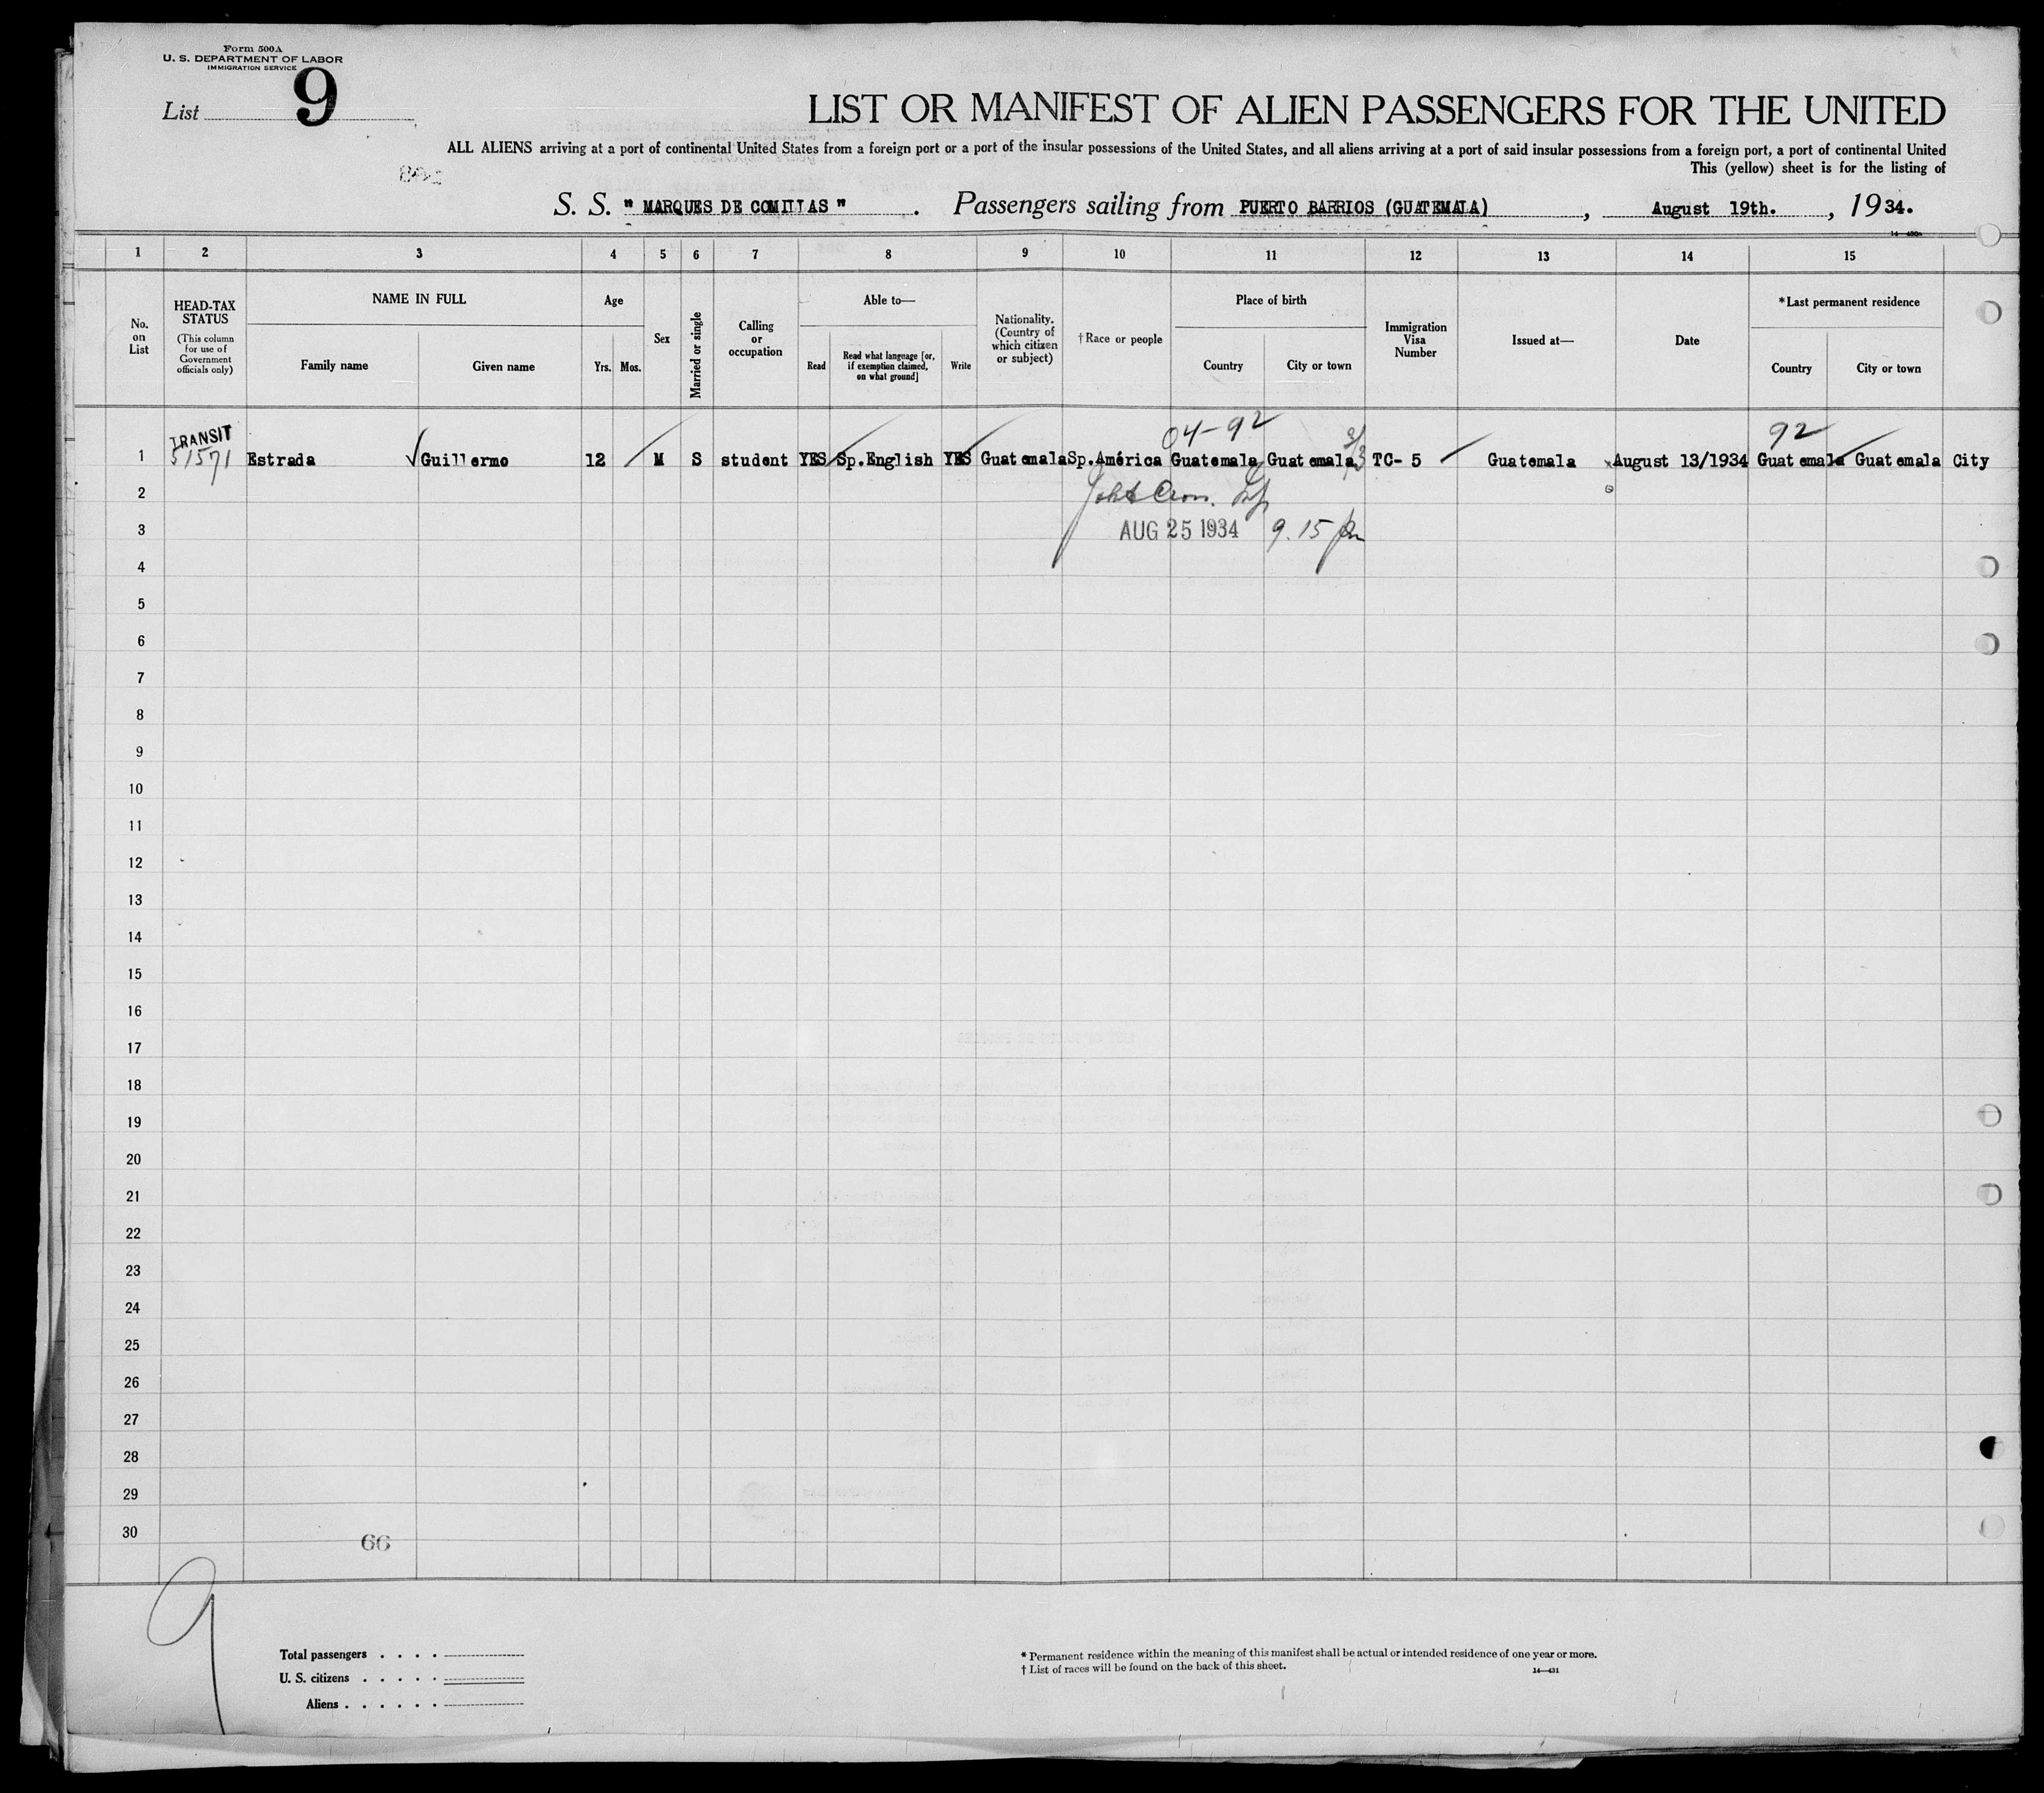 Form 500A
U. S. DEPARTMENT OF LABOR
IMMIGRATION SERVICE
List 9
LIST OR MANIFEST OF ALIEN PASSENGERS FOR THE UNITED
ALL ALIENS arriving at a port of continental United States from a foreign port or a port of the insular possessions of the United States, and all aliens arriving at a port of said insular possessions from a foreign port, a port of continental United
This (yellow) sheet is for the listing of
S. S. " MARQUES DE COMILLAS " . Passengers sailing from PUERTO BARRIOS (GUATEMALA) , August 19th. , 1934.
1 2 3 4 5 6 7 8 9 10 11 12 13 14 15
No. on List
HEAD-TAX STATUS
(This column for use of Government officials only)
NAME IN FULL
Family name Given name
Age
Yrs. Mos.
Sex
Married or single
Calling or occupation
Able to—
Read
Read what language [or, if exemption claimed, on what ground]
Write
Nationality. (Country of which citizen or subject)
†Race or people
Place of birth
Country City or town
Immigration Visa Number
Issued at—
Date
*Last permanent residence
Country City or town
04-92 92
TRANSIT
51571
1 Estrada Guillermo 12 M S student YES Sp.English YES Guatemala Sp.América Guatemala Guatemala TC- 5 Guatemala August 13/1934 Guatemala Guatemala City
2
3 AUG 25 1934 9.15 pm
4
5
6
7
8
9
10
11
12
13
14
15
16
17
18
19
20
21
22
23
24
25
26
27
28
29
30
66
9
Total passengers . . . .
U. S. citizens . . . . .
Aliens . . . . . .
* Permanent residence within the meaning of this manifest shall be actual or intended residence of one year or more.
† List of races will be found on the back of this sheet.
14—431